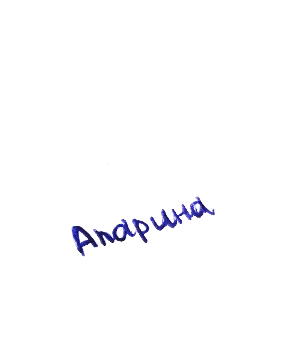 Апарина